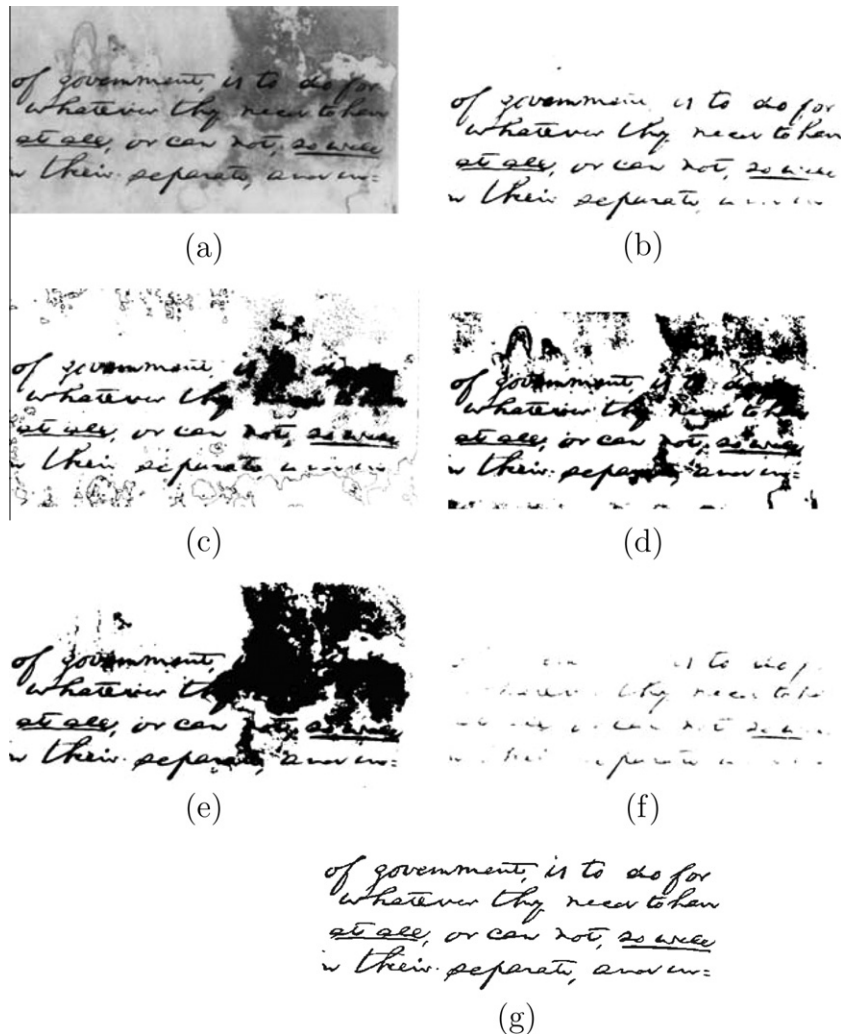 of government, is to do for
whatever they need to have
at all, or can not, so well
in their separate, and in=
(a)
of government, is to do for
whatever they need to have
at all, or can not, so well
their separate,
(b)
of government,
whatever they
at all, or can not, so well
their separate
(c)
of government, is to do
whatever they need to have
at all, or can not, so well
their separate, and in=
(d)
of government,
whatever
at all, or can not, so well
their separate, and in=
(e)
is to do
they need to
or can not so
separate
(f)
of government, is to do for
whatever they need to have
at all, or can not, so well
in their separate, and in=
(g)